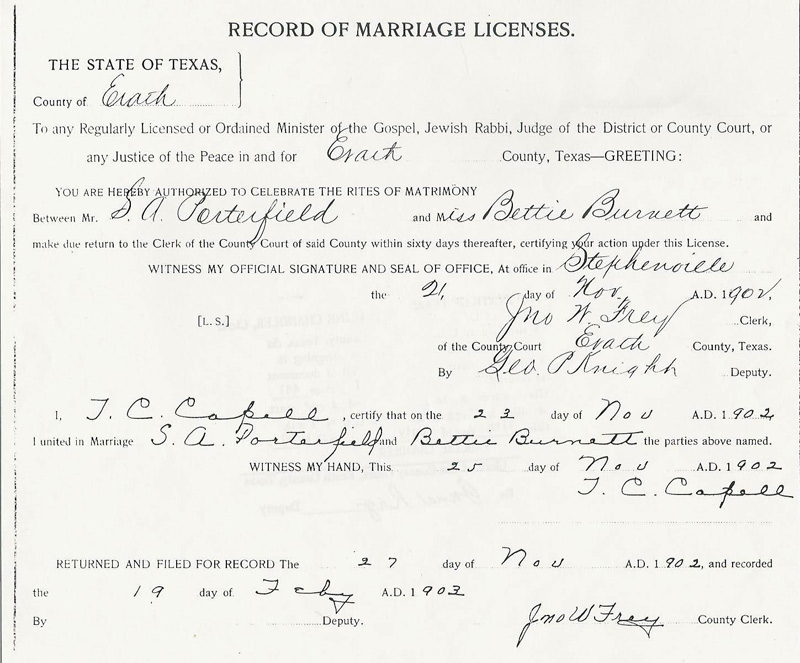 RECORD OF MARRIAGE LICENSES.
THE STATE OF TEXAS,
County of Erath
To any Regularly Licensed or Ordained Minister of the Gospel, Jewish Rabbi, Judge of the District or County Court, or
any Justice of the Peace in and for Erath County, Texas—GREETING:
YOU ARE HEREBY AUTHORIZED TO CELEBRATE THE RITES OF MATRIMONY
Between Mr. S. A. Porterfield and Miss Bettie Burnett and
make due return to the Clerk of the County Court of said County within sixty days thereafter, certifying your action under this License.
WITNESS MY OFFICIAL SIGNATURE AND SEAL OF OFFICE, At office in Stephenville
the 21, day of Nov. A.D. 1902,
[L. S.] Jno W. Frey Clerk,
of the County Court Erath County, Texas.
By Geo. P Knight Deputy.
I, T. C. Capell, certify that on the 23 day of Nov A.D. 1902,
I united in Marriage S. A. Porterfield and Bettie Burnett the parties above named.
WITNESS MY HAND, This 25 day of Nov A.D. 1902
T. C. Capell
RETURNED AND FILED FOR RECORD The 27 day of Nov A.D. 1902, and recorded
the 19 day of Feby A.D. 1903
By Deputy. Jno W Frey County Clerk.